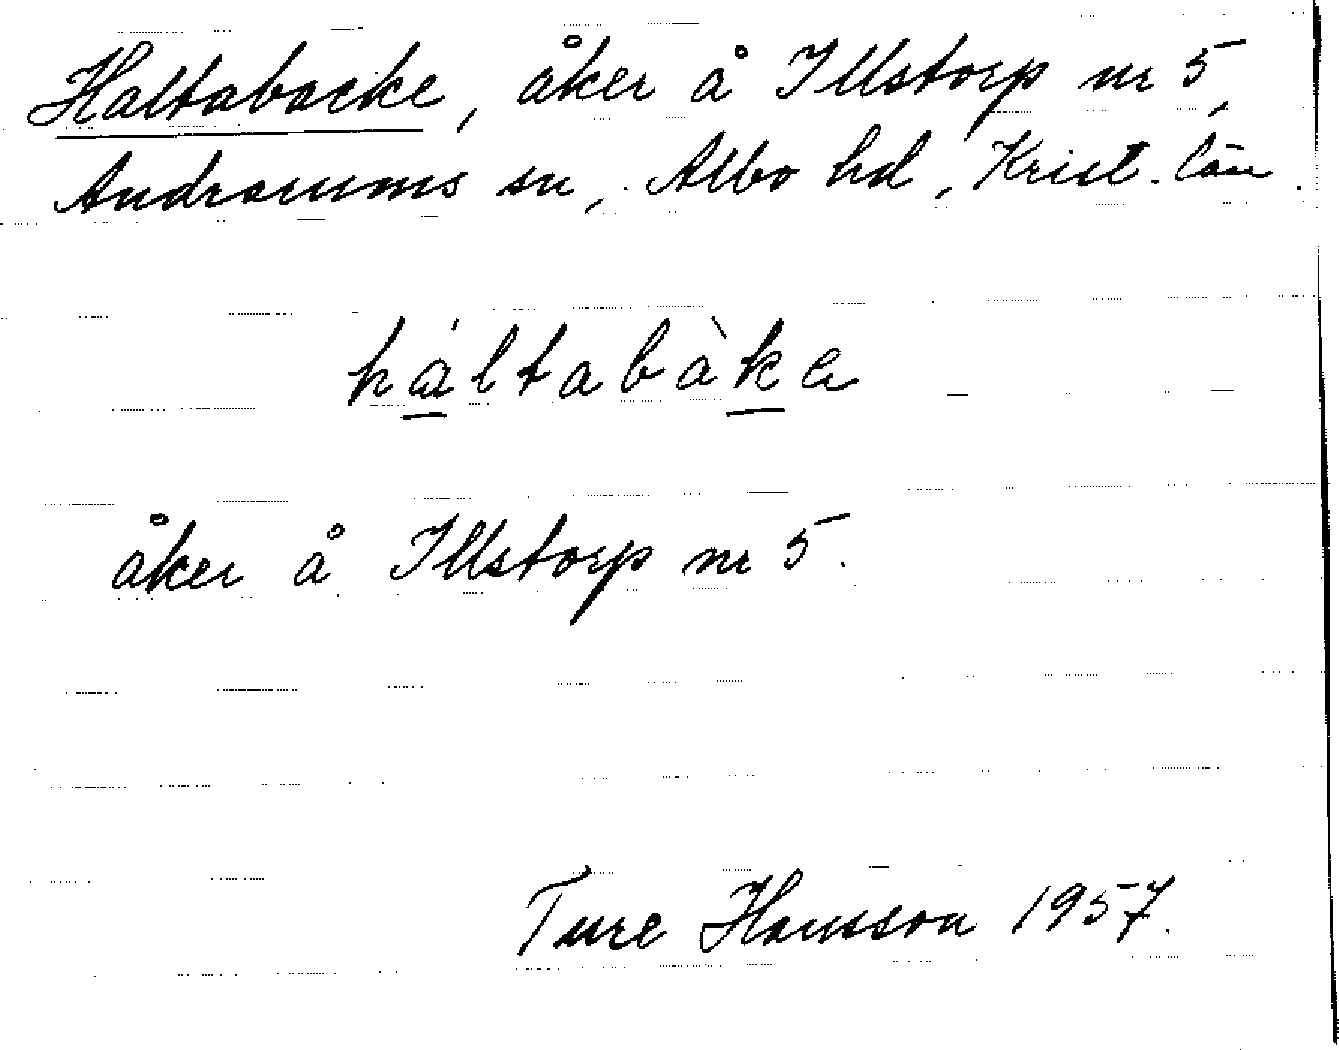 Haltabacke, åker å Illstorp nr 5,
Andrarums sn, Albo hd, Krist. län.
háltabàka
åker å Illstorp nr 5.
Ture Hansson 1957.